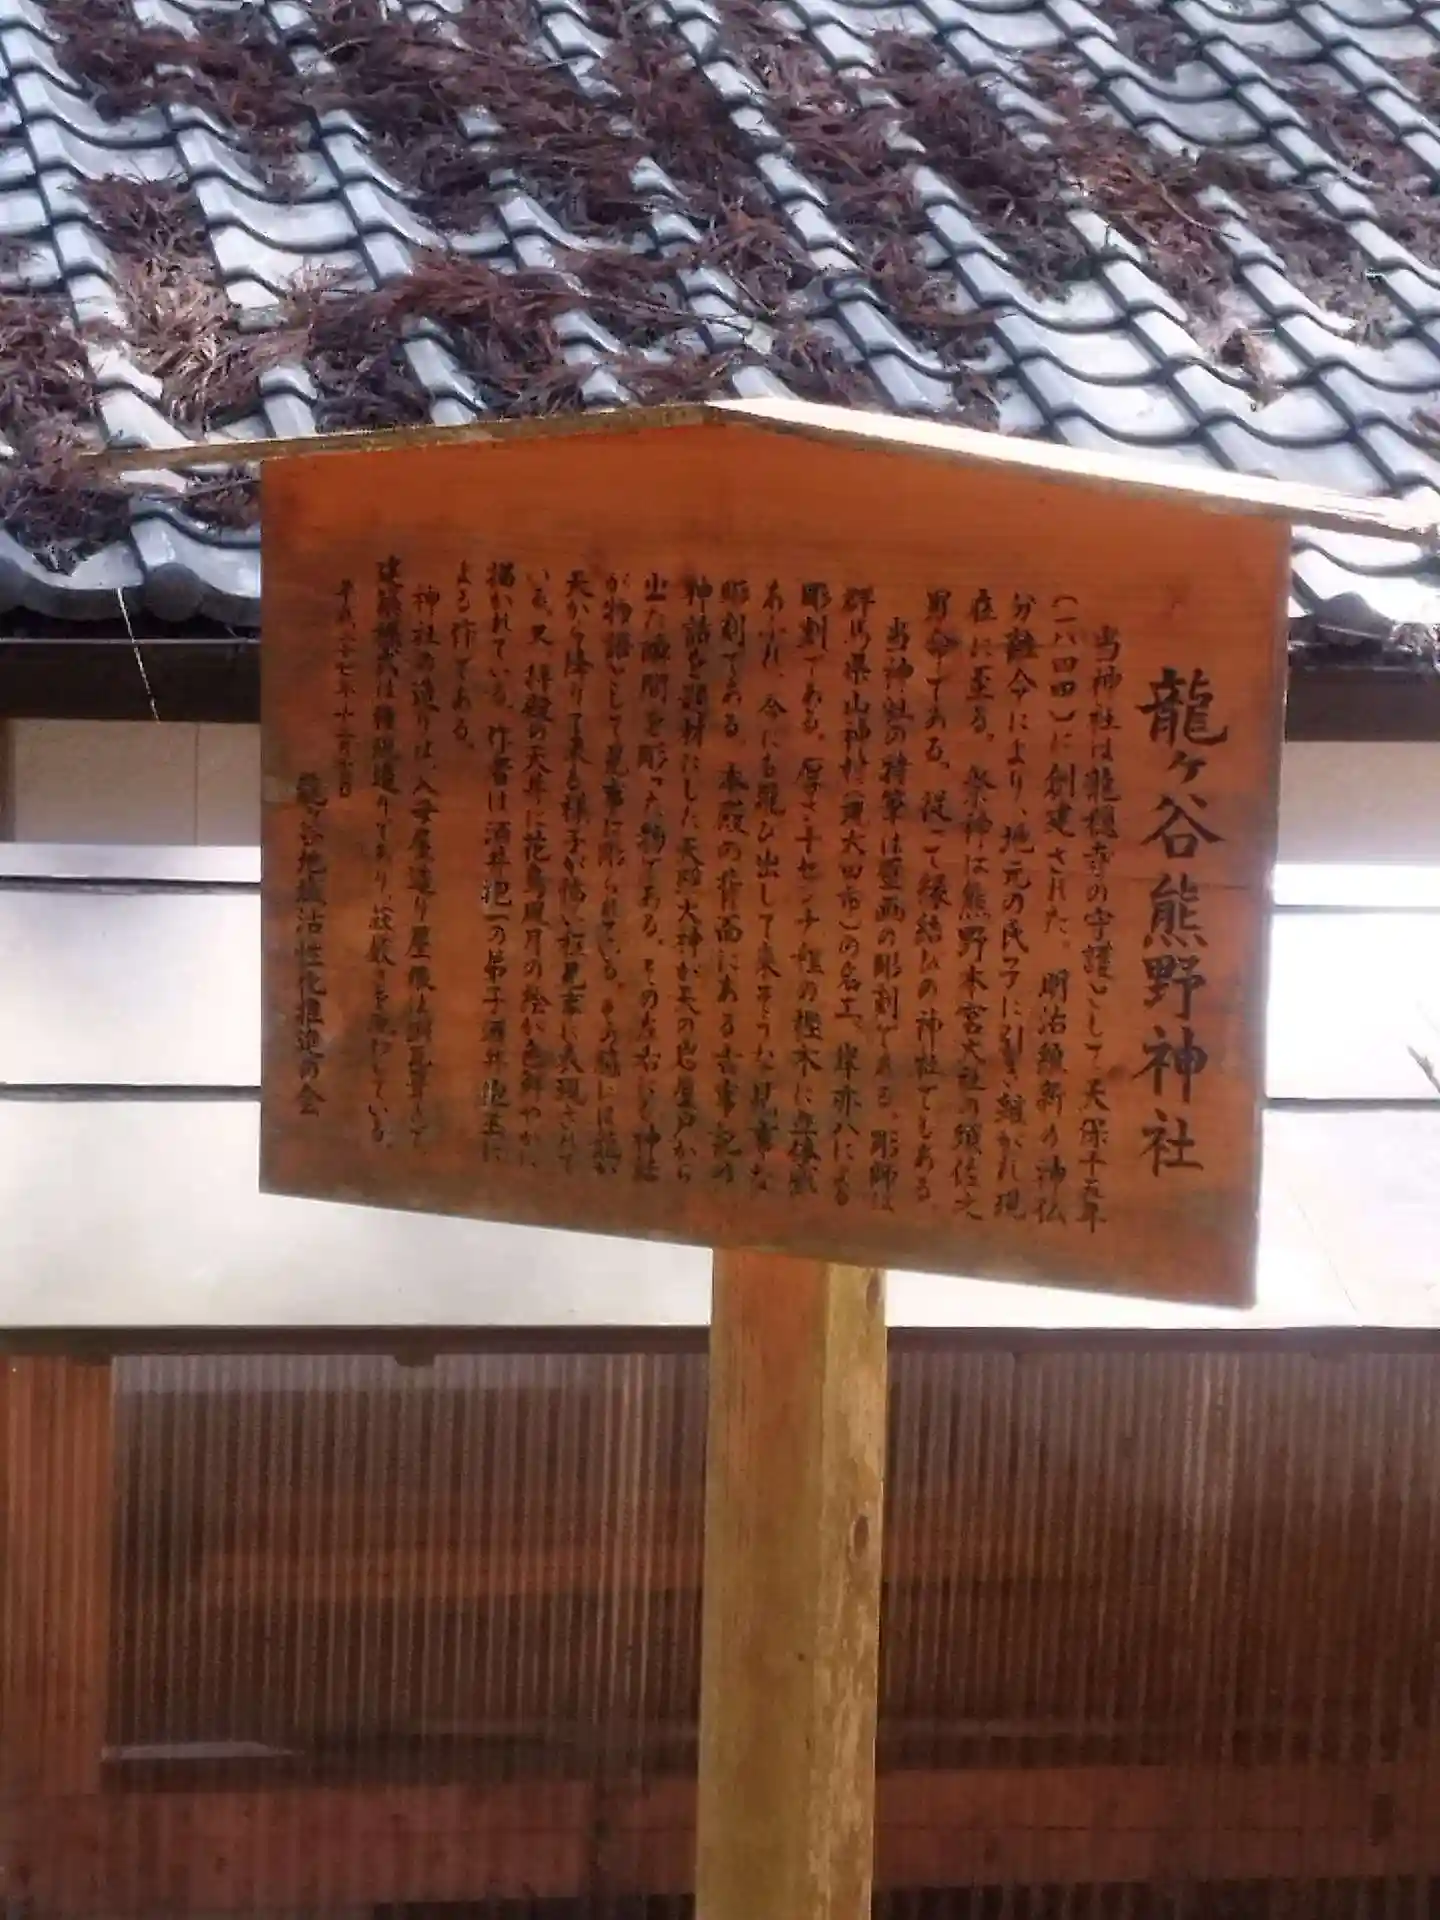 龍ヶ谷熊野神社
当神社は龍穏寺の守護として、天保十五年
(一八四四)に創建された。明治維新の神仏
分離令により、地元の民フアに引き継がれ現
在に至る。祭神は熊野本宮大社の須佐之
男命である。従って縁結びの神社でもある。
当神社の特筆は壁画の彫刻である。彫師は
群馬県山神村(現太田市)の名工、岸亦八による
彫刻である。厚さ十センチ程の欅木に立体感
あふれ、今にも飛び出して来そうな見事な
彫刻である。本殿の背面にある古事記の
神話を題材にした天照大神が天の岩屋戸から
出た瞬間を彫った物である。その左右にも神話
が物語として見事に彫られている。その脇には龍が
天から降りて来る様子が怖い程見事に表現されて
いる。又、拝殿の天井に花鳥風月の絵が色鮮やかに
描かれている。作者は酒井抱一の弟子酒井抱玉に
よる作である。
神社の造りは、入母屋造り屋根は銅瓦葺きで、
建築様式は権現造りであり、荘厳さを漂わしている。
平成二十七年十一月吉日
龍ヶ谷地域活性化推進の会